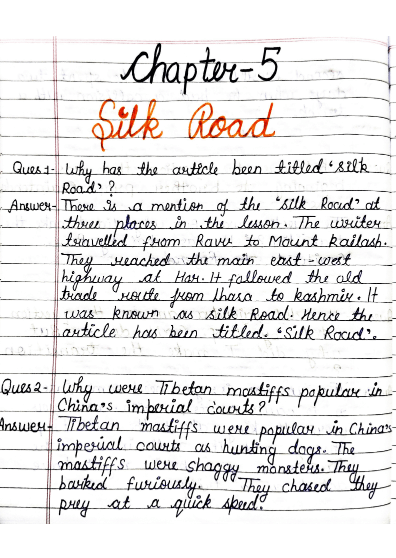 Chapter-5
Silk Road
Ques 1- Why has the article been titled 'silk
Road'?
Answer- There is a mention of the 'silk Road' at
three places in the lesson. The writer
travelled from Ravu to Mount kailash.
They reached the main east-west
highway at Hor. It followed the old
trade route from lhasa to kashmir. It
was known as silk Road. Hence the
article has been titled. 'Silk Road'.
Ques 2- Why were Tibetan mastiffs popular in
China's imperial courts?
Answer- Tibetan mastiffs were popular in China's
imperial courts as hunting dogs. The
mastiffs were shaggy monsters. They
barked furiously. They chased they
prey at a quick speed.